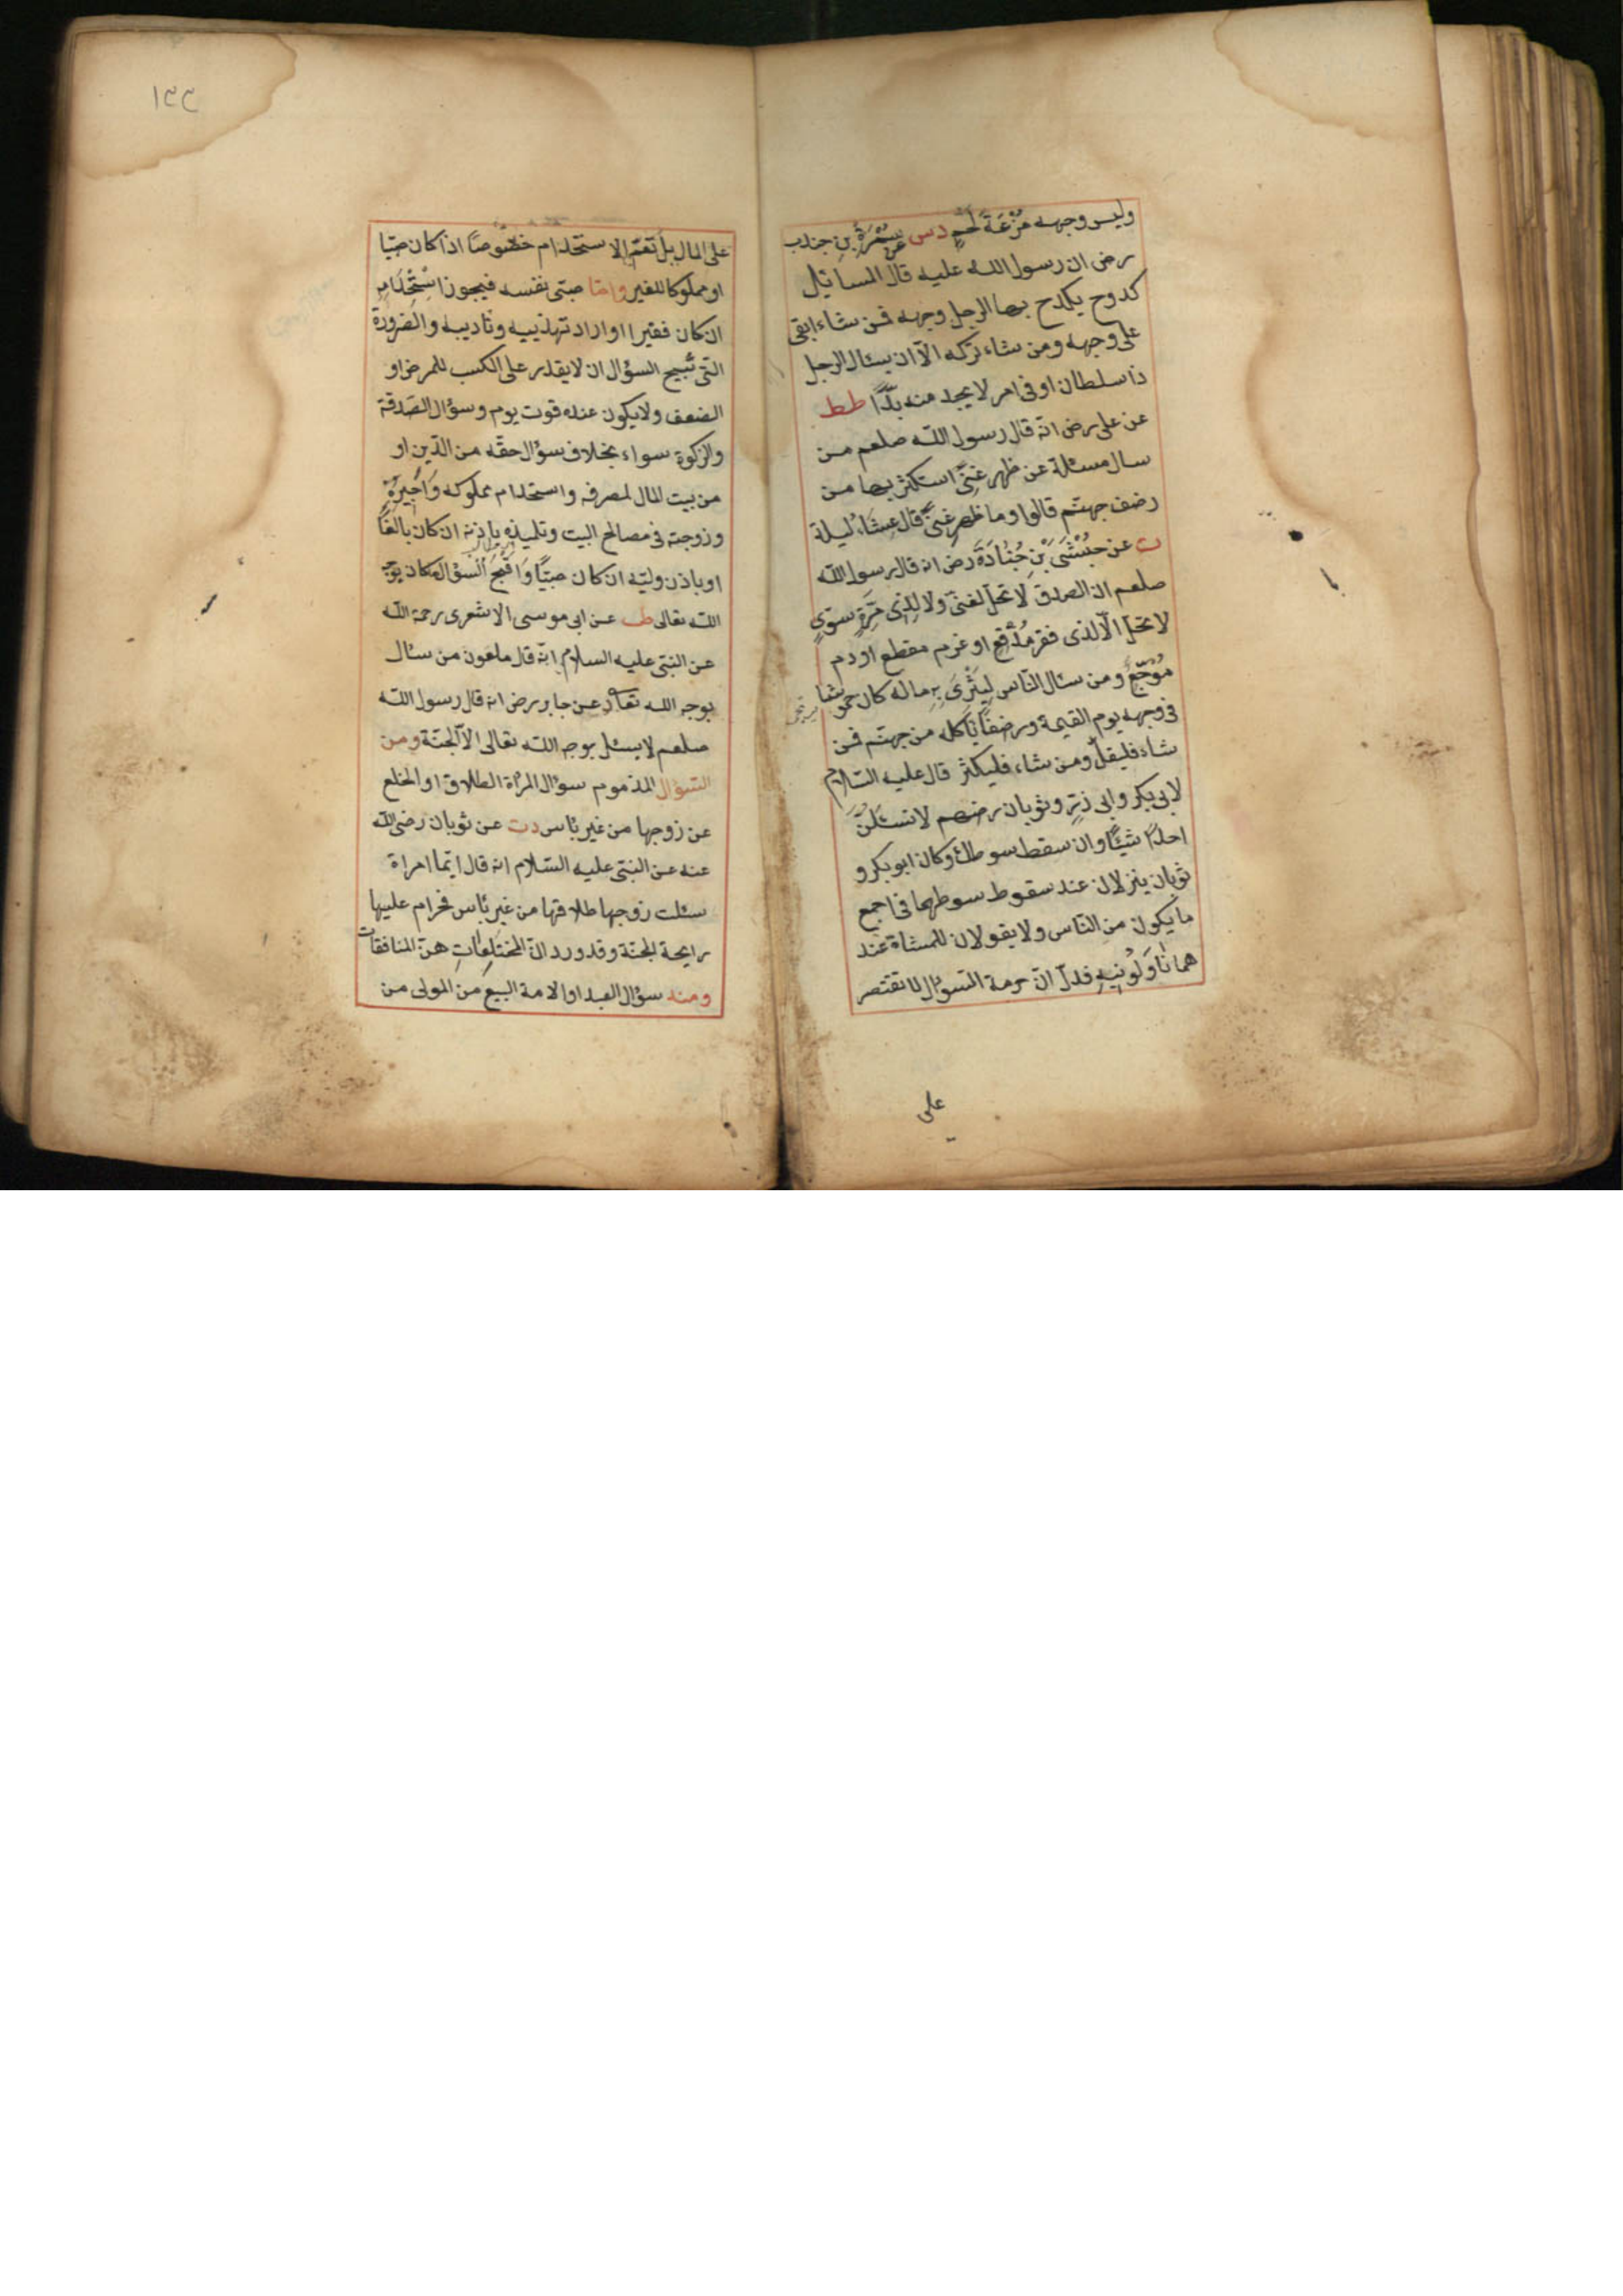 وليس وجهه مُزْعَةُ لَحْمٍ دس عن سَمُرَةَ بنِ جندب
رض ان رسول الله عليه قال المسائل
كدوح يكدح بها الرجل وجهه فمن شاء ابقى
على وجهه ومن شاء تركه الّا ان يسئال الرجل
ذا سلطان او فى امر لا يجد منه بدًّا طط
عن على رض انّه قال رسول الله صلعم من
سال مسئلة عن ظهر غِنًى استكثر بها من
رضف جهنّم قالوا وما ظهر غنىً قال عِشَاءُ ليلة
ت عن حُبْشَى بْنِ جُنَادَةَ رض انه قال رسول الله
صلعم ان الصدقة لا تحلّ لغنىّ ولا لِذِى مِرَّةٍ سَوِىٍ
لا تحلّ الّا لذى فقر مُدْقِعٍ او غرم مفظع او دم
مُوْجِعٍ ومن سئال النّاس لِيُثْرِىَ بِهِ ماله كان خموشا
فى وجهه يوم القيمة ورضفًا ياكله من جهنّم فمن
شاء فليقلّ ومن شاء فليكثر قال عليه السّلام
لابى بكر وابى ذرٍ وثوبان رضهم لا تسئلنّ
احدًا شيئًا وان سقط سوطك وكان ابو بكر و
ثوبان ينزلان عند سقوط سوطهما فى اجمع
ما يكون من النّاس ولا يقولان للمشاة عند
هما نَاوِلُونِيهِ فدلّ انّ حرمة السّؤال لا تقتصر
على
١٣٣
على المال بل تعمّ الاستخدام خصوصًا اذا كان صبيّا
او مملوكا للغير وامّا صبىّ نفسه فيجوز اسْتِخْدَامه
ان كان فقيرا او اراد تهذيبه وتاديبه والضرورة
التى تُبيح السؤال ان لا يقدر على الكسب للمرض او
الضعف ولا يكون عنده قوت يوم وسؤال الصّدقة
والزكوة سواء بخلاف سؤال حقّه من الدّين او
من بيت المال لمصرفه واستخدام مملوكه وَاَجِيْرِهِ
وزوجته فى مصالح البيت وتلميذه باذنه ان كان بالغًا
او باذن وليّه ان كان صبيًّا وَاَقْبَحُ السؤال ما كان بوجه
الله تعالى طب عن ابى موسى الاشعرى رحمة الله
عن النبى عليه السلام انّه قال ملعون من سئال
بوجه الله تعالى د عن جابر رض انه قال رسول الله
صلعم لا يسئل بوجه الله تعالى الّا الجنّة ومن
السّؤال المذموم سؤال المرأة الطلاق او الخلع
عن زوجها من غير بأس دت عن ثوبان رضى الله
عنه عن النبى عليه السّلام انه قال ايّما امراة
سئلت زوجها طلاقها من غير بأس فحرام عليها
رايحة الجنّة وقد ورد انّ المختلِعات هنّ المنافقات
ومنه سؤال العبد او الامة البيعَ من المولى من